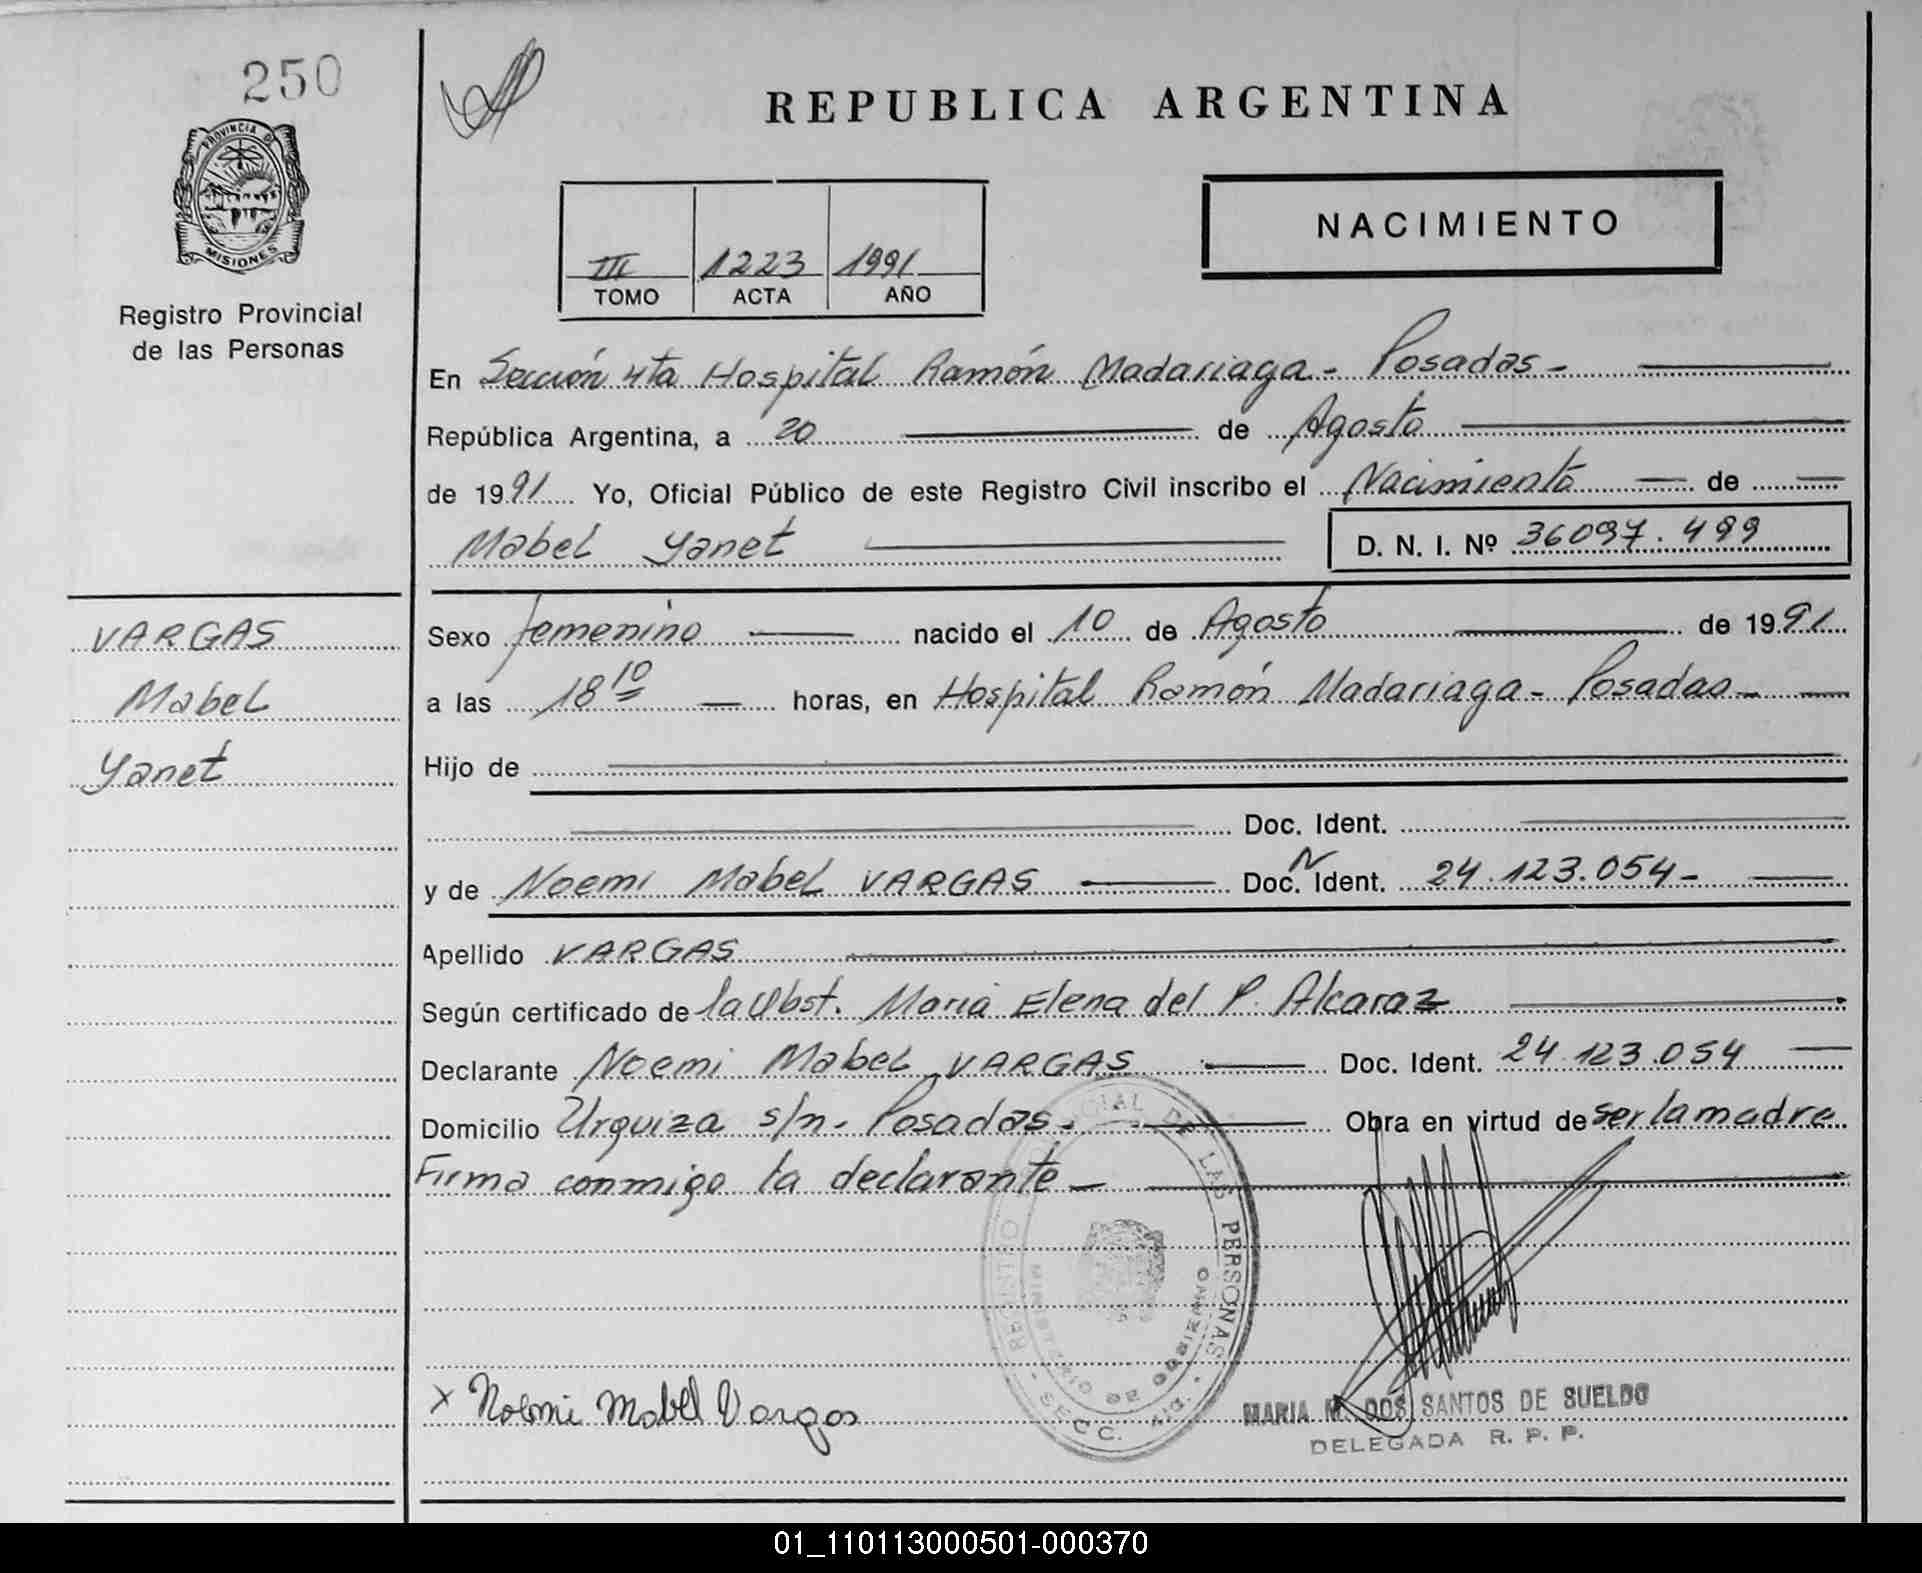 250
PROVINCIA DE
MISIONES
Registro Provincial
de las Personas
VARGAS
Mabel
Yanet
REPUBLICA ARGENTINA
III 1223 1991
TOMO ACTA AÑO
NACIMIENTO
En Sección 4ta Hospital Ramón Madariaga - Posadas -
República Argentina, a 20 de Agosto
de 1991 Yo, Oficial Público de este Registro Civil inscribo el Nacimiento de
Mabel Yanet D. N. I. Nº 36097.499
Sexo femenino nacido el 10 de Agosto de 1991
a las 18 10 horas, en Hospital Ramón Madariaga - Posadas -
Hijo de
Doc. Ident.
y de Noemi Mabel VARGAS Doc. N Ident. 24.123.054 -
Apellido VARGAS
Según certificado de la Obst. Maria Elena del P. Alcaraz
Declarante Noemi Mabel VARGAS Doc. Ident. 24.123.054
Domicilio Urquiza s/n - Posadas - Obra en virtud de ser la madre
Firma conmigo la declarante -
REGISTRO PROVINCIAL DE LAS PERSONAS
MINISTERIO DE GOBIERNO
SECC. 4ta.
x Noemi Mabel Vargas
MARIA M. DOS SANTOS DE SUELDO
DELEGADA R. P. P.
01_110113000501-000370